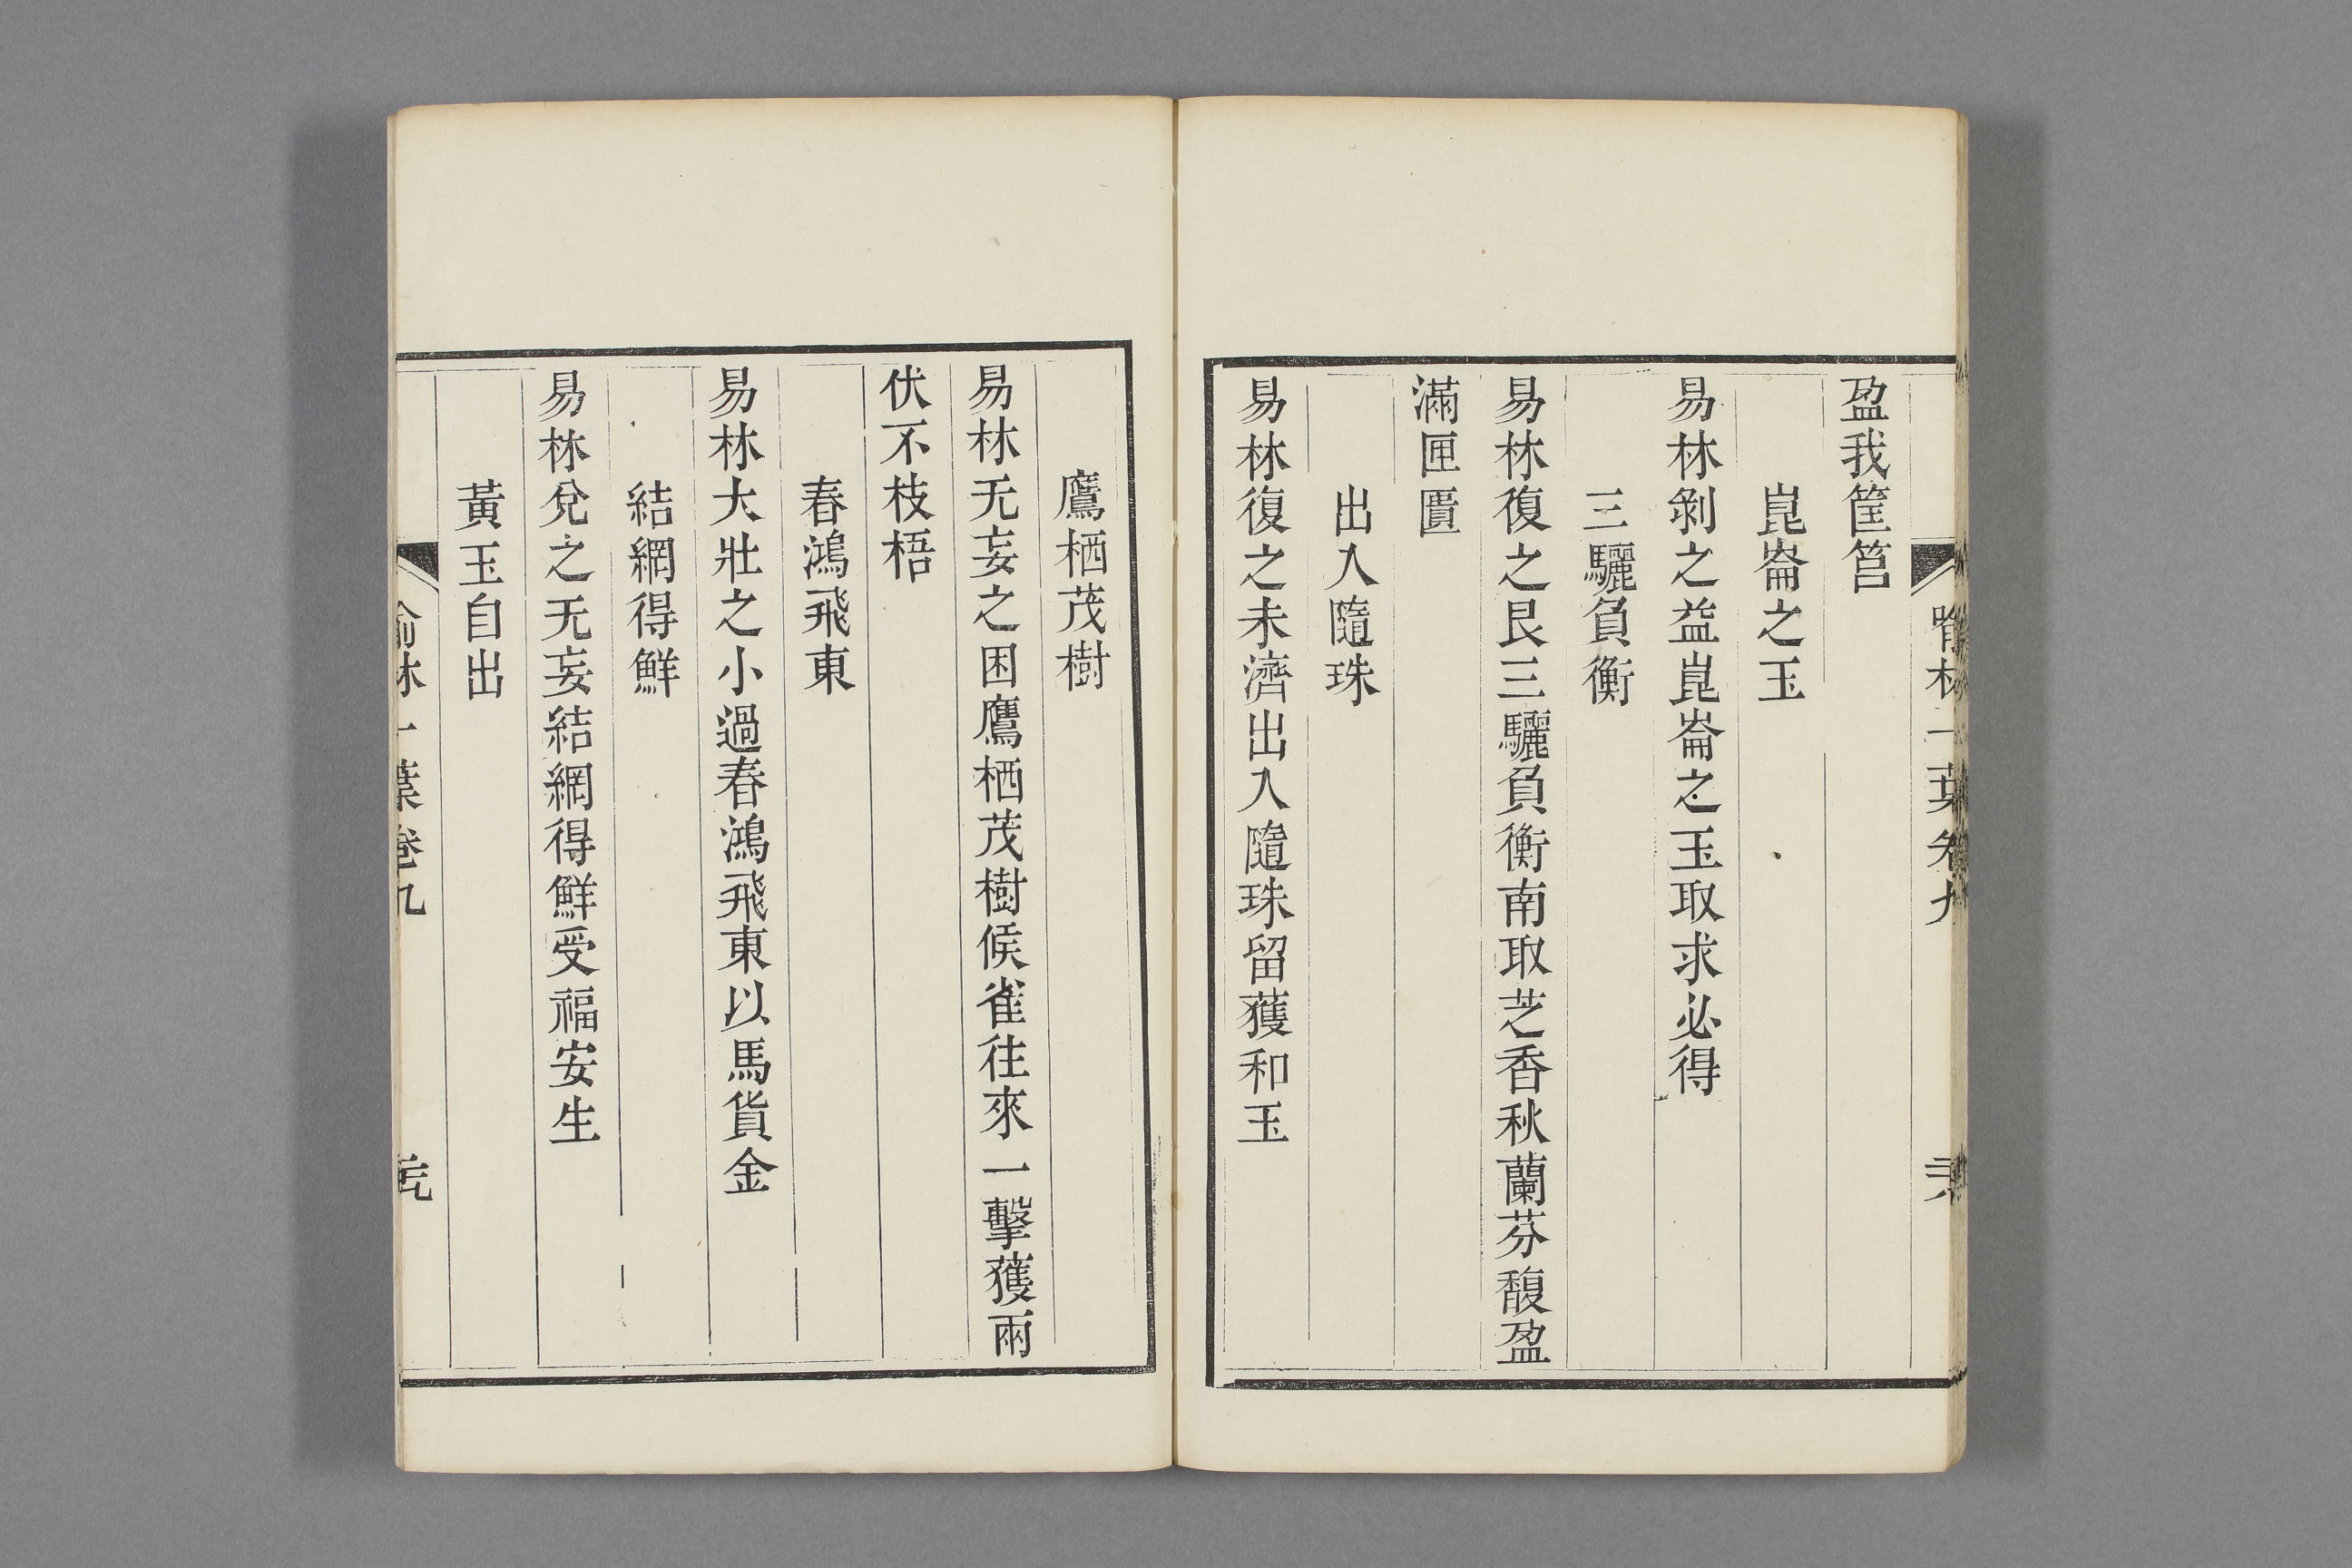 盈我筐筥
崑崙之玉
易林剝之益崑崙之玉取求必得
三驪負衡
易林復之艮三驪負衡南取芝香秋蘭芬馥盈
滿匣匱
出入隨珠
易林復之未濟出入隨珠留獲和玉
鷹栖茂樹
易林无妄之困鷹栖茂樹候雀往來一擊獲兩
伏不枝梧
春鴻飛東
易林大壯之小過春鴻飛東以馬貨金
結網得鮮
易林兌之无妄結網得鮮受福安生
黃玉自出